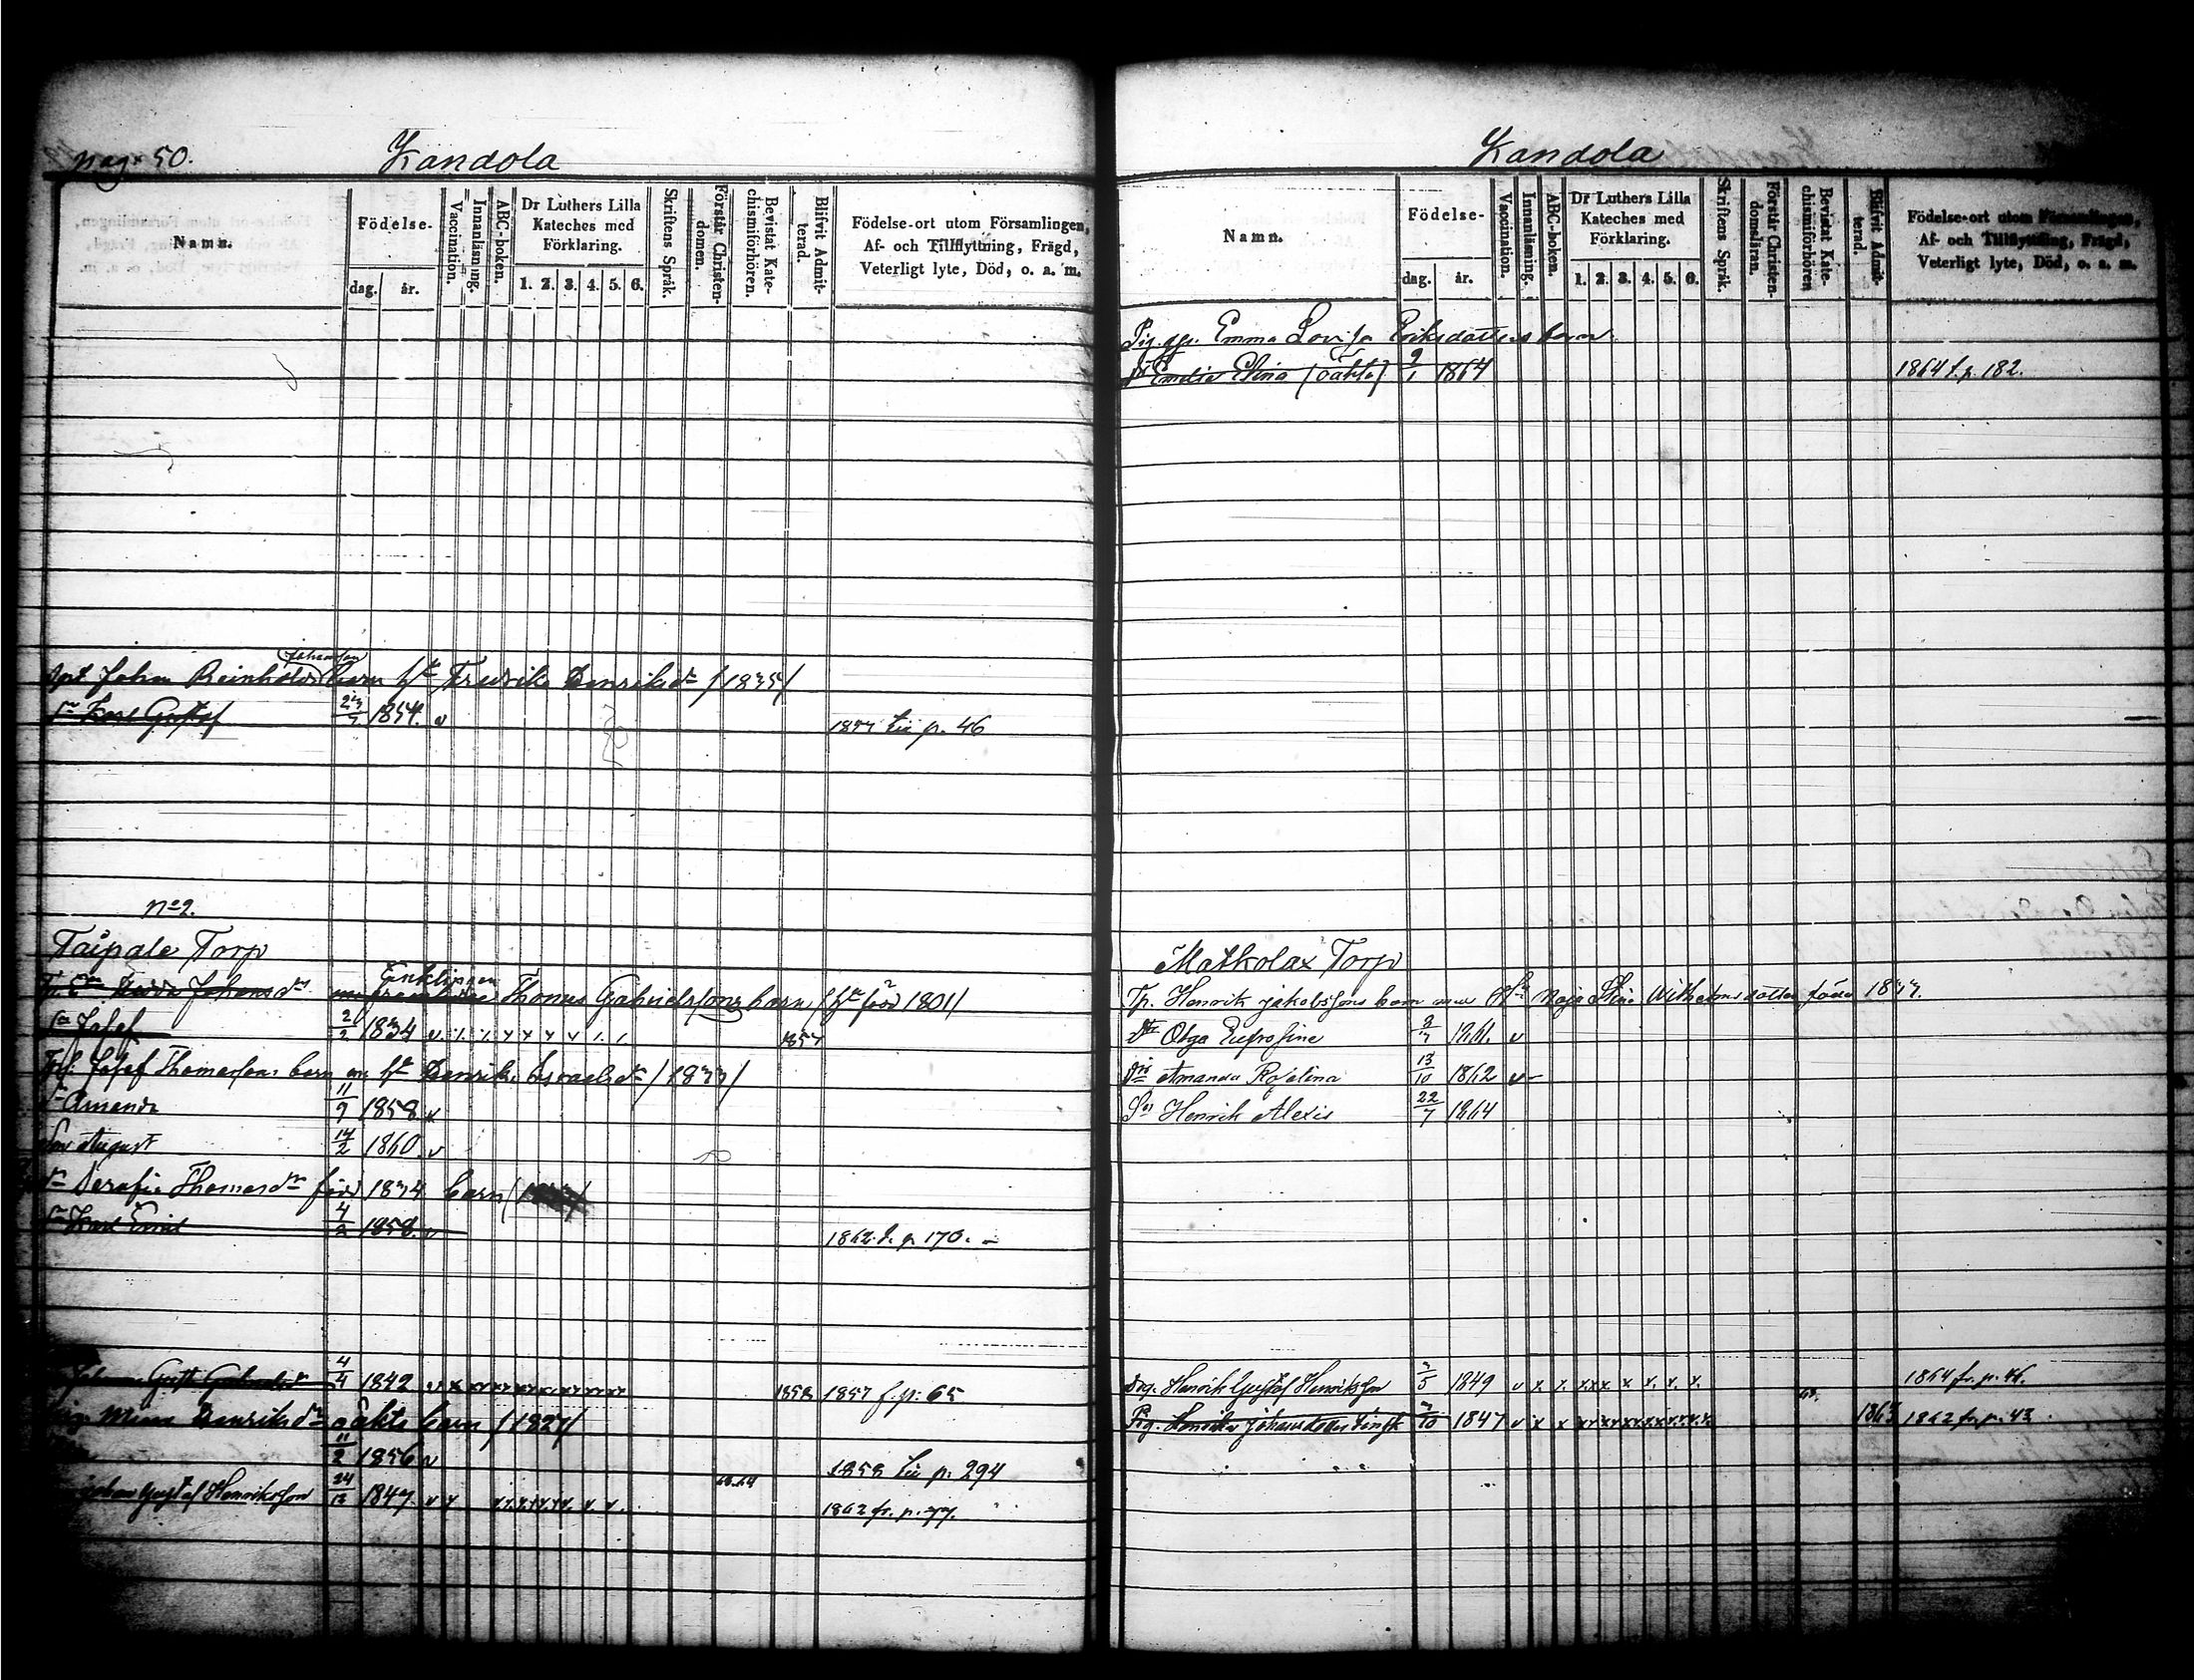 pag. 50. Kandola
Namn.
Födelse-
dag. år.
Vaccination.
Innanläsning.
ABC-boken.
Dr Luthers Lilla Kateches med Förklaring.
1. 2. 3. 4. 5. 6.
Skriftens Språk.
Förstår Christendomen.
Bevistat Katechismiförhören.
Blifvit Admitterad.
Födelse-ort utom Församlingen,
Af- och Tillflyttning, Frägd,
Veterligt lyte, Död, o. a. m.
Johansson
Johan Reinholds barn Fredrika Henriksdr /1835/
Karl Gustaf 1854. v 1857 till p. 46
No 2.
Taipale Torp
Enklingen
Johansdr Thomas Gabrielssons barn född 1801/
Josef 2/2 1834 1857
Josef Thomassons barn Henrika /1833/
Amanda 11/9 1858 v
Son August 14/2 1860 v
Serafia Thomasdr född 1834 barn
Karl Emil 4/2 1858. v 1862. t. p. 170.
4/4 1842 1858 1857 f. p. 65
Henriksdr oäkta barn /1827/
11/2 1856 v 1858 till p. 294
Johan Gustaf Henriksson 24/12 1847. v 1862 fr. p. 77.
Kandola
Namn.
Födelse-
dag. år.
Vaccination.
Innanläsning.
ABC-boken.
Dr Luthers Lilla Kateches med Förklaring.
1. 2. 3. 4. 5. 6.
Skriftens Språk.
Förstår Christendomsläran.
Bevistat Katechismiförhören
Blifvit Admitterad.
Födelse-ort utom Församlingen,
Af- och Tillflyttning, Frägd,
Veterligt lyte, Död, o. a. m.
Pig. Emma Lovisa Eriksdotters barn.
Emelie Elina (oäkta) 9/1 1864 1864 t. p. 182.
Matkolax Torp
Tp. Henrik Jakobssons barn Maja Stina Wilhelmsdotter född 1833.
Dtr Olga Eufrosine 1861. v
Amanda Rosalina 13/10 1862 v
Sn Henrik Alexis 22/7 1864
Drg. Henrik Gustaf Henriksson 1849 v x x. x x x. x x. x. x. 1864 fr. p. 46.
Pig. Johansdotter 1847 v x x 1863 1862 fr. p. 43.